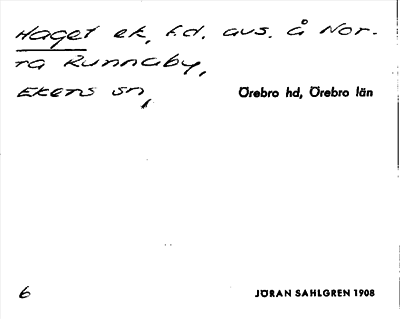 Haget ek, f.d. avs. å Nor-
ra Runnaby,
Ekers sn,
Örebro hd, Örebro län
6
JÖRAN SAHLGREN 1908